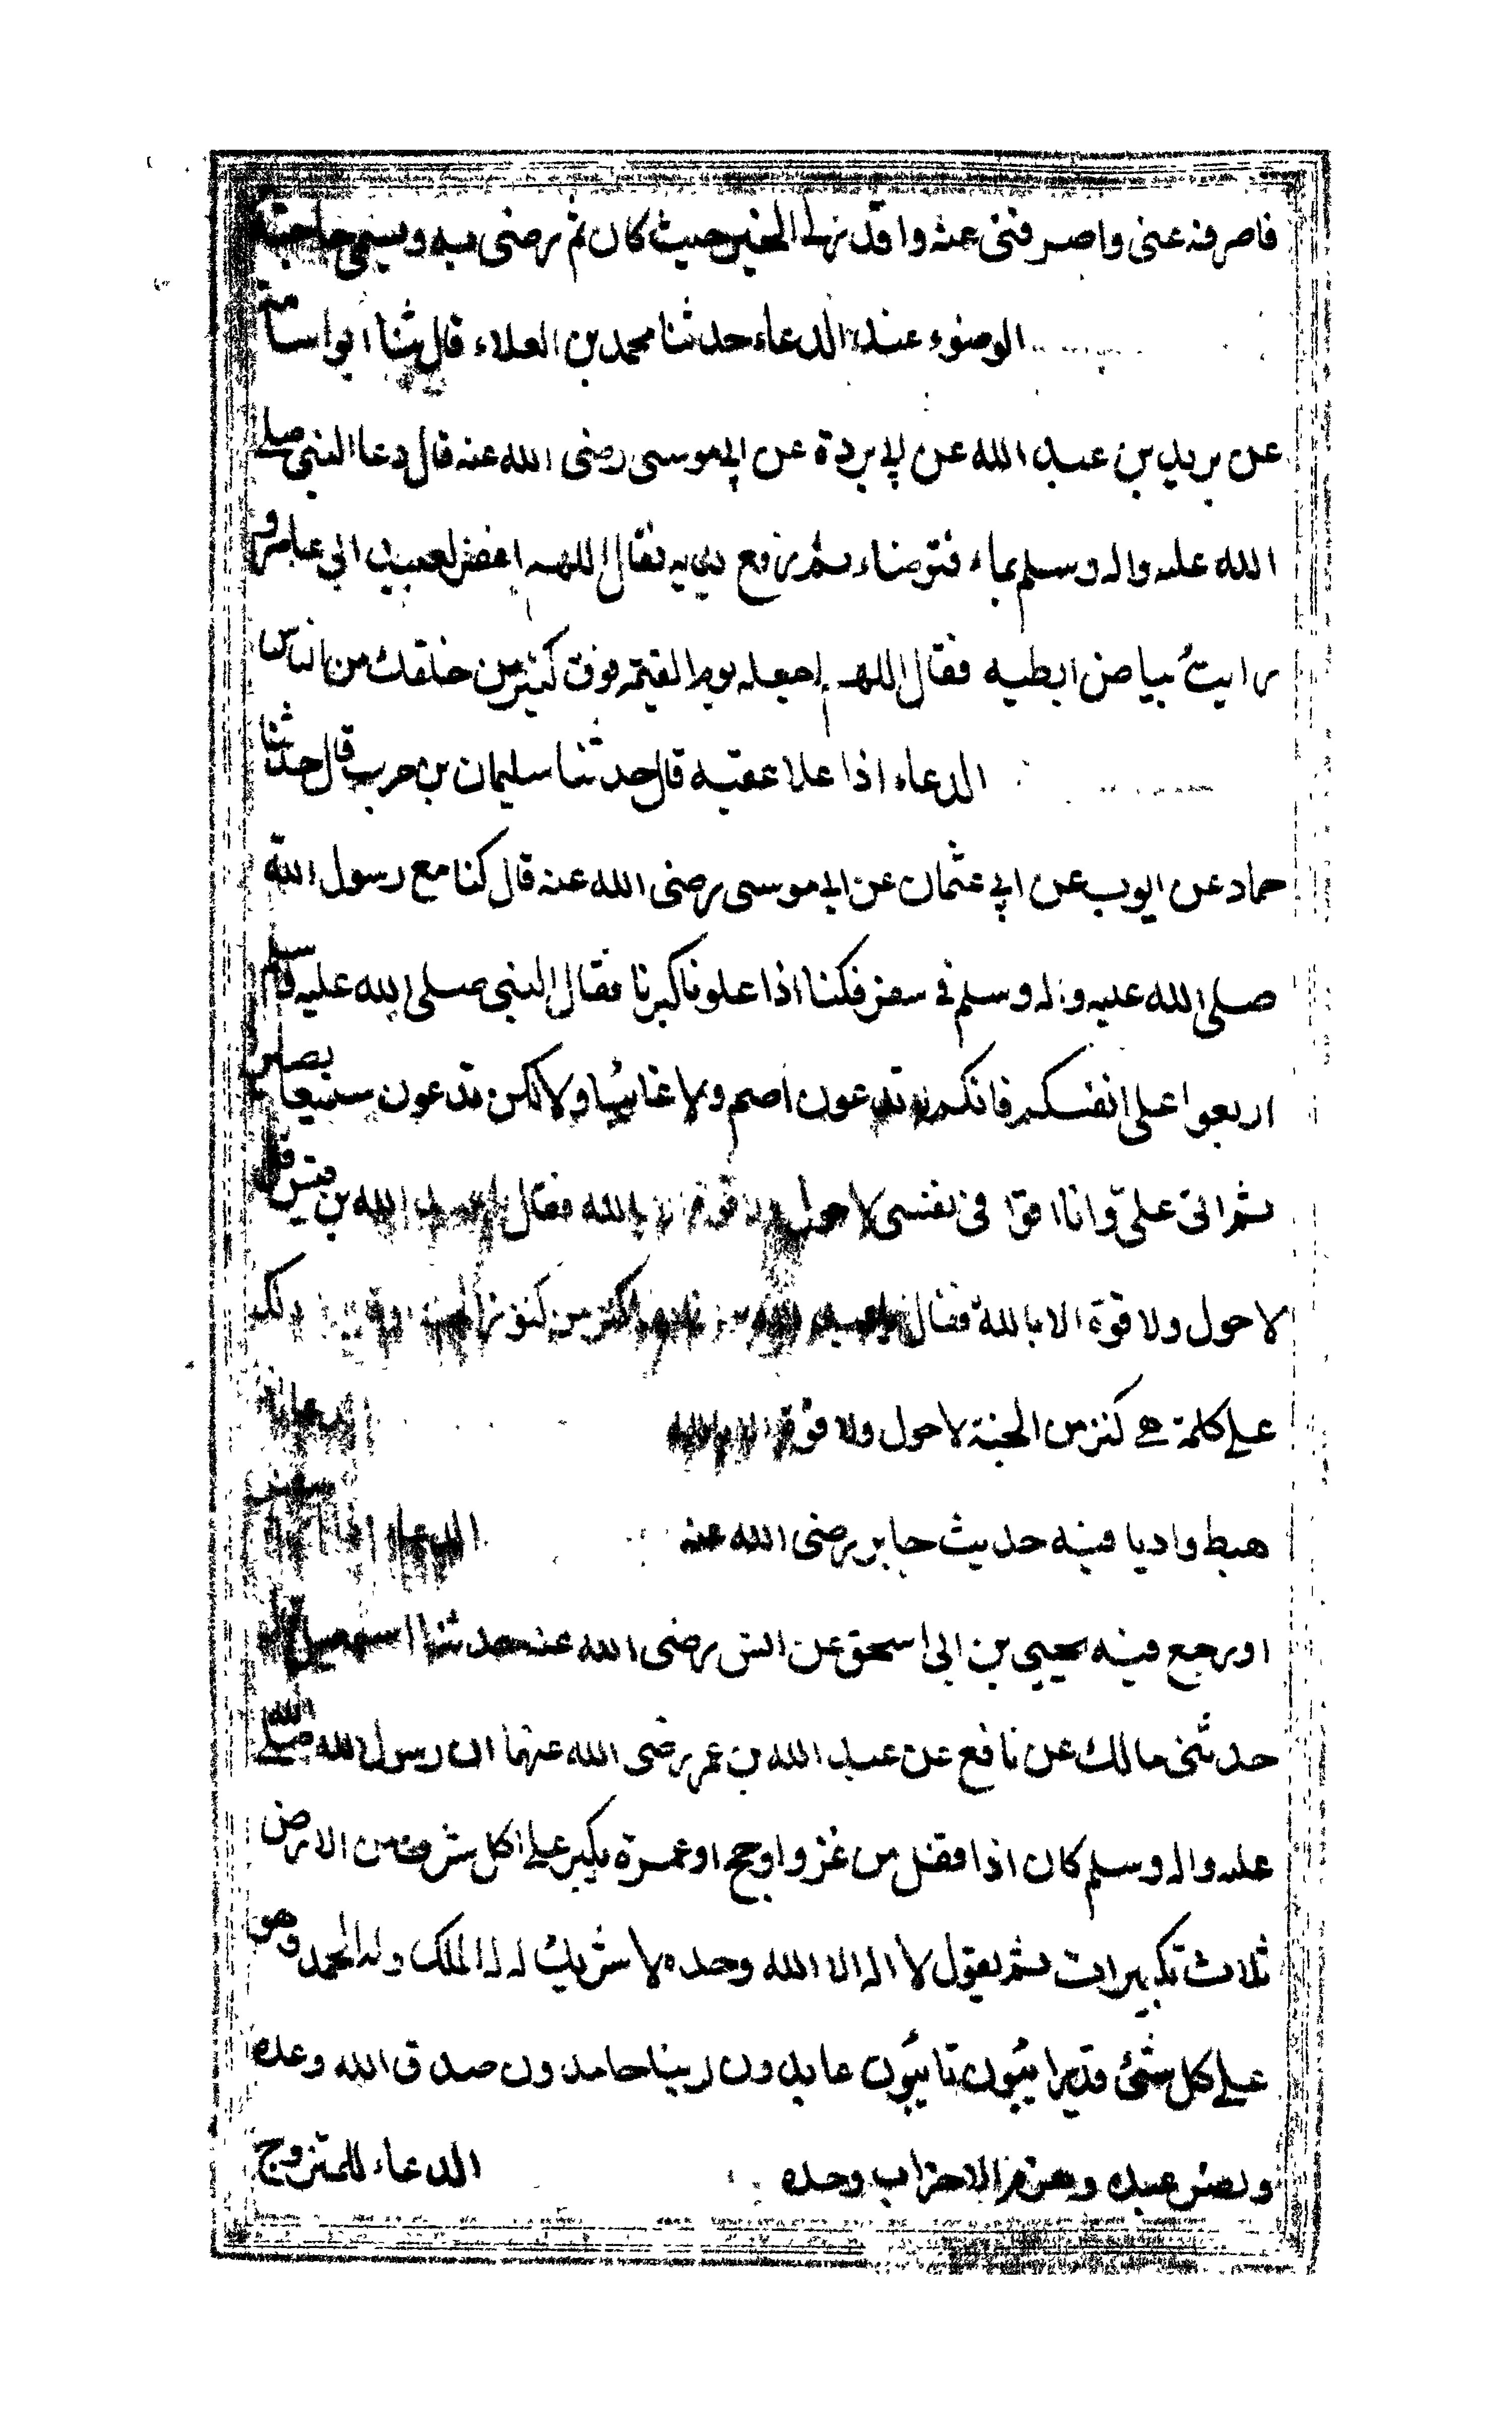 فاصرفه عنى واصرفنى عنه واقدر لى الخير حيث كان ثم رضنى به ويسمى حاجته
الوضوء عند الدعاء حدثنا محمد بن العلاء قال ثنا ابواسامة
عن بريد بن عبد الله عن ابى بردة عن ابى موسى رضى الله عنه قال دعا النبى صلى
الله عليه واله وسلم بماء فتوضاء ثم رفع يديه فقال اللهم اغفر لعبيد ابى عامر و
رايت بياض ابطيه فقال اللهم اجعله يوم القيمة فوق كثير من خلقك من الناس
الدعاء اذا علا عقبه قال حدثنا سليمان بن حرب قال حدثنا
حماد عن ايوب عن ابى عثمان عن ابى موسى رضى الله عنه قال كنا مع رسول الله
صلى الله عليه واله وسلم فى سفر فكنا اذا علونا كبرنا فقال النبى صلى الله عليه وسلم
اربعوا على انفسكم فانكم لا تدعون اصم ولا غائبا ولاكن تدعون سميعا بصيرا
ثم اتى على وانا اقول فى نفسى لا حول ولا قوة الا بالله فقال يا عبد الله بن قيس قل
لا حول ولا قوة الا بالله فقال كنز من كنوز الجنة ادلك
على كلمة هى كنز من الجنة لا حول ولا قوة الا بالله الدعاء اذا
هبط واديا فيه حديث جابر رضى الله عنه الدعاء اذا اراد سفرا
اورجع فيه يحيى بن ابى اسحق عن انس رضى الله عنه حدثنا اسمعيل قال
حدثنى مالك عن نافع عن عبد الله بن عمر رضى الله عنهما ان رسول الله صلى الله
عليه واله وسلم كان اذا قفل من غزو اوحج اوعمرة يكبر على كل شرف من الارض
ثلاث تكبيرات ثم يقول لا اله الا الله وحده لا شريك له له الملك وله الحمد وهو
على كل شئ قدير ائبون تائبون عابدون لربنا حامدون صدق الله وعده
ونصر عبده وهزم الاحزاب وحده الدعاء للمتزوج